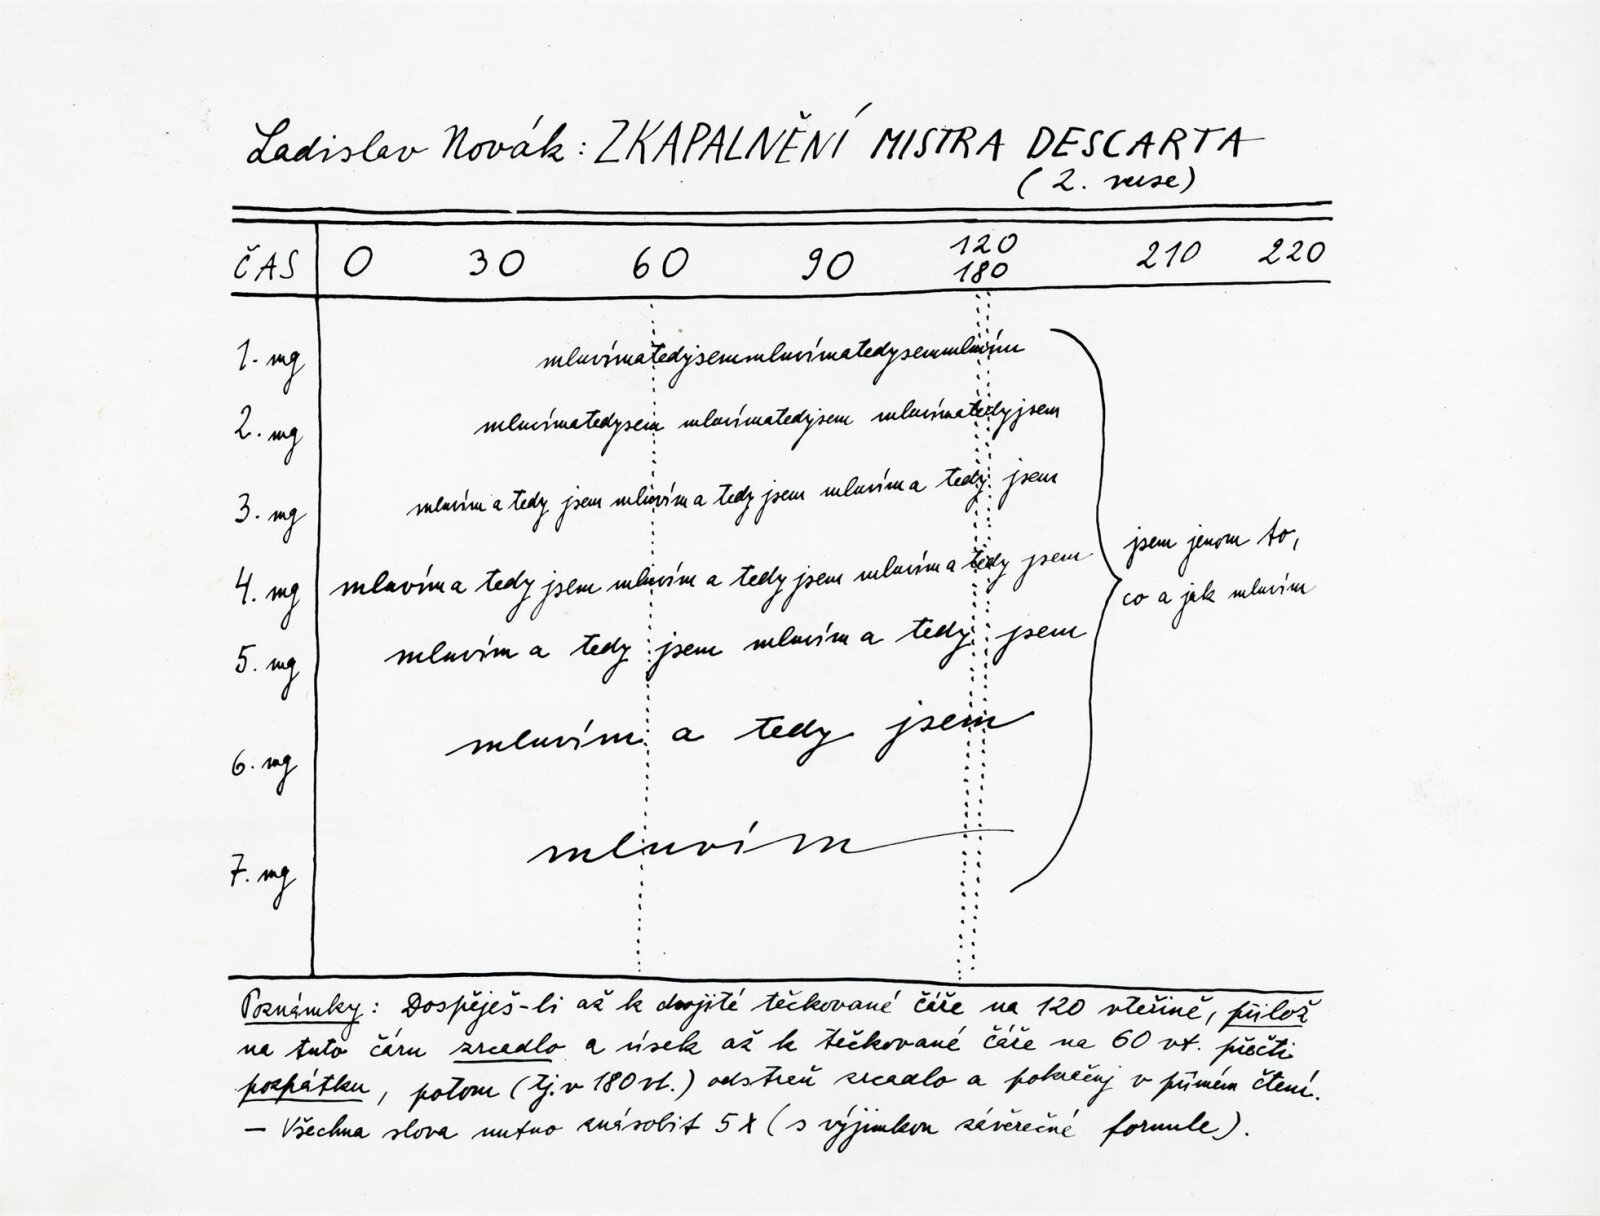 Ladislav Novák: ZKAPALNĚNÍ MISTRA DESCARTA
(2. verse)
ČAS 0 30 60 90 120 180 210 220
1. mg mluvímatedyjsemmluvímatedyjsemmluvím
2. mg mluvímatedyjsem mluvímatedyjsem mluvímatedyjsem
3. mg mluvím a tedy jsem mluvím a tedy jsem mluvím a tedy jsem
4. mg mluvím a tedy jsem mluvím a tedy jsem mluvím a tedy jsem
5. mg mluvím a tedy jsem mluvím a tedy jsem
6. mg mluvím a tedy jsem
7. mg mluvím
jsem jenom to,
co a jak mluvím
Poznámky: Dospěješ-li až k dvojité tečkované čáře na 120 vteřině, přilož
na tuto čáru zrcadlo a úsek až k tečkované čáře na 60 vt. přečti
pozpátku, potom (tj. v 180 vt.) odstraň zrcadlo a pokračuj v přímém čtení.
— Všechna slova nutno znásobit 5x (s výjimkou závěrečné formule).